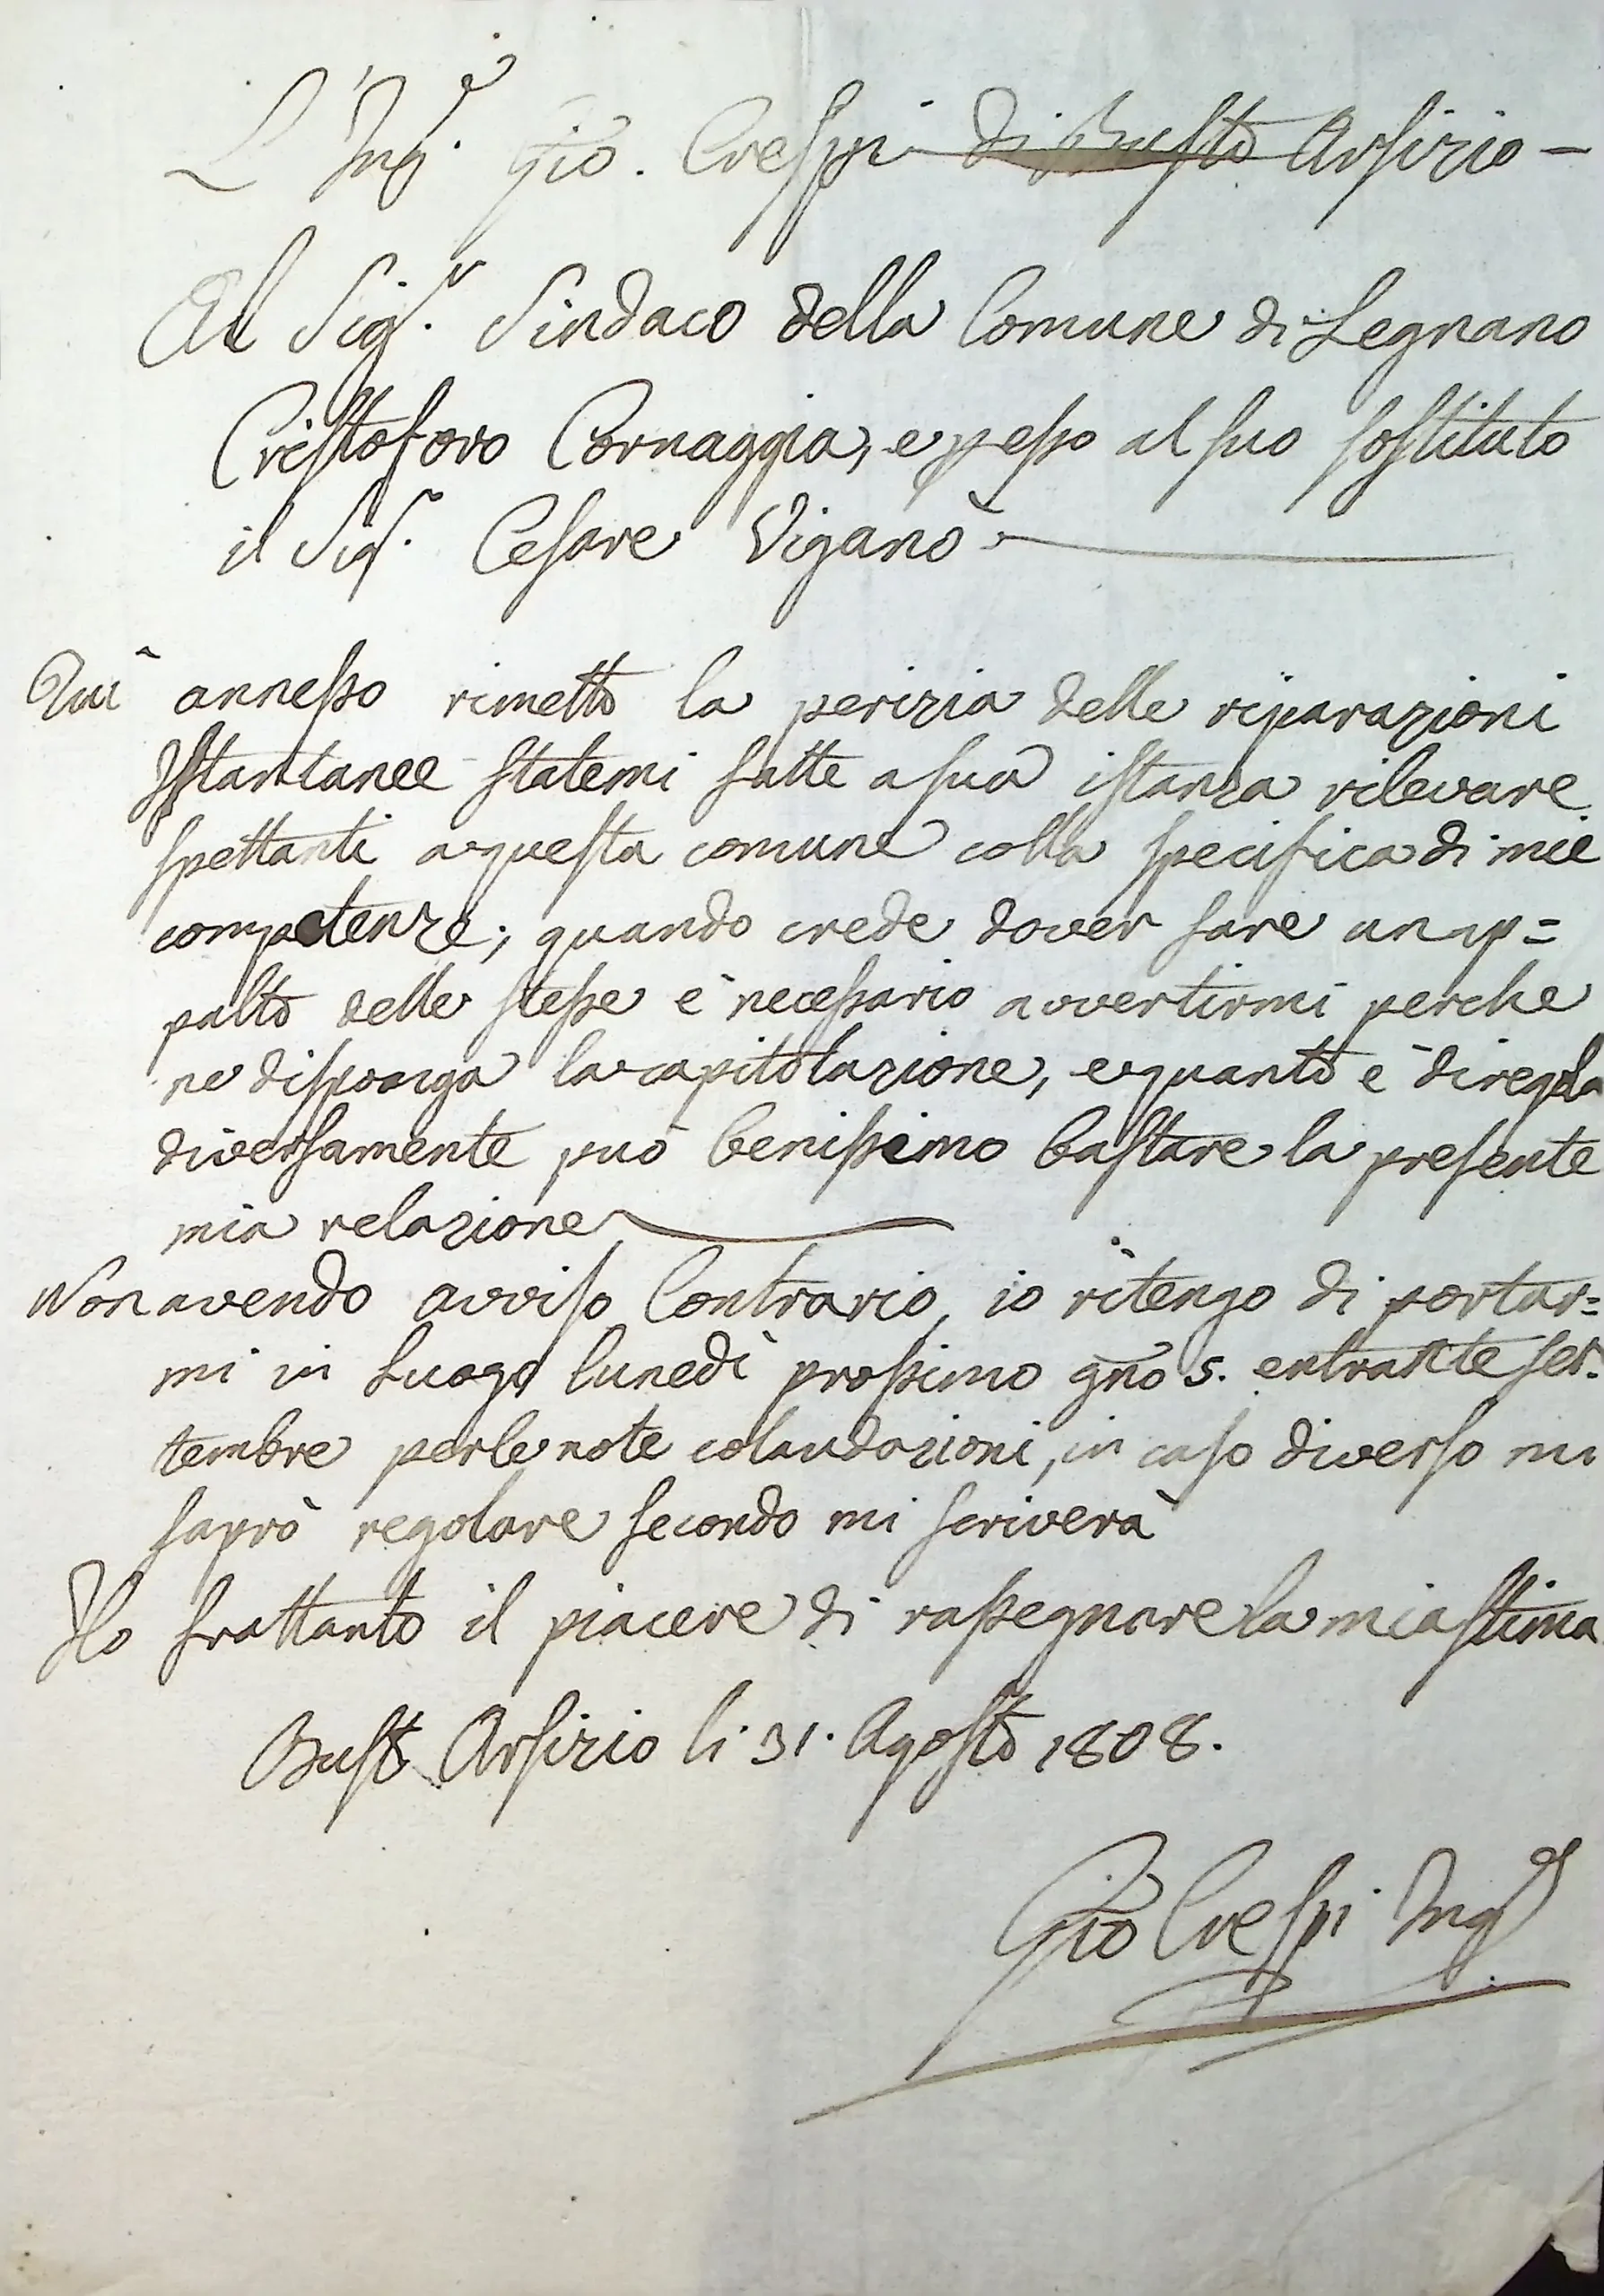 L'Ing.e Gio. Crespi di Busto Arsizio —
Al Sig.r Sindaco della Comune di Legnano
Cristoforo Cornaggia, e presso al suo sostituto
il Sig.r Cesare Viganò
Quì annesso rimetto la perizia delle riparazioni
Istantanee statemi fatte a sua istanza rilevare
spettanti a questa comune colla specifica di mie
competenze; quando crede dover fare un ap=
palto delle stesse è necessario avvertirmi perche
ne disponga la capitolazione, e quanto è di regola
diversamente può benissimo bastare la presente
mia relazione
Non avendo avviso Contrario, io ritengo di portar=
mi in Luogo lunedì prossimo gño 5. entrante set-
tembre per le note colaudazioni, in caso diverso mi
saprò regolare secondo mi scriverà
Ho frattanto il piacere di rassegnare la mia stima
Busto Arsizio li 31. Agosto 1808.
Gio Crespi Ing.e